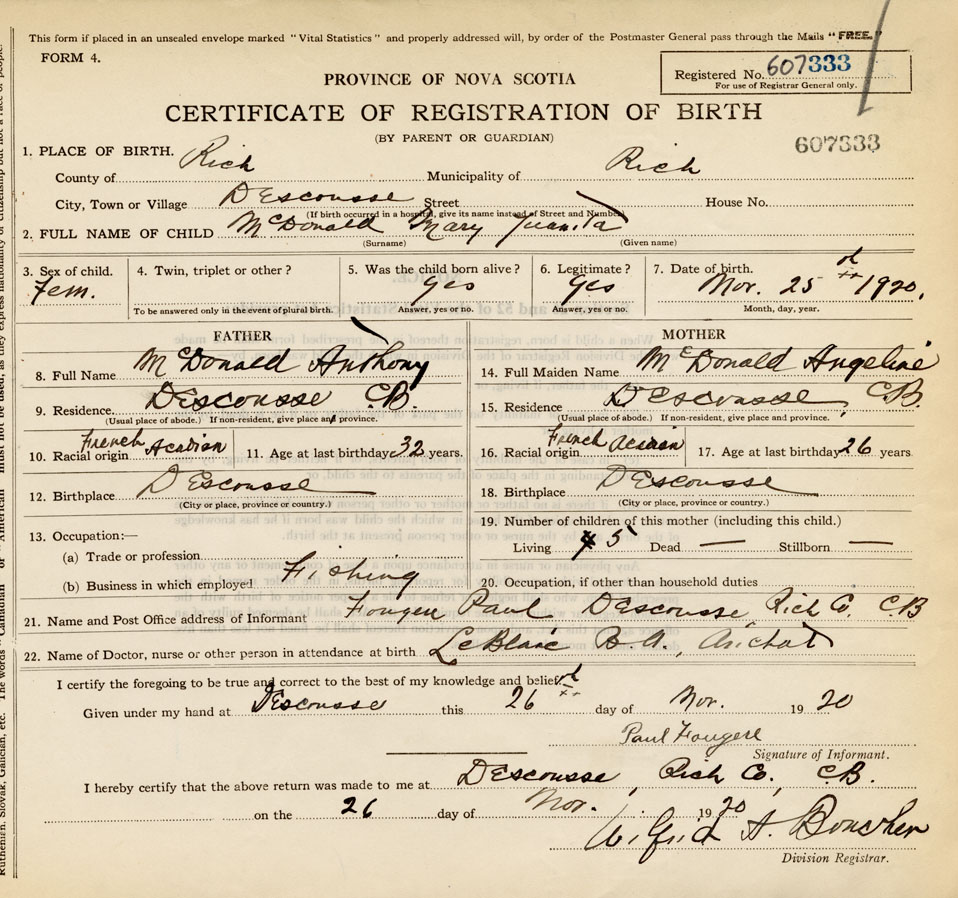 This form if placed in an unsealed envelope marked "Vital Statistics" and properly addressed will, by order of the Postmaster General pass through the Mails "FREE."
FORM 4.
Registered No. 607333
For use of Registrar General only.
PROVINCE OF NOVA SCOTIA
CERTIFICATE OF REGISTRATION OF BIRTH
(BY PARENT OR GUARDIAN)
607333
1. PLACE OF BIRTH.
County of Rich Municipality of Rich
City, Town or Village DEscousse Street House No.
(If birth occurred in a hospital, give its name instead of Street and Number)
2. FULL NAME OF CHILD McDonald Mary Juanita
(Surname) (Given name)
3. Sex of child. Fem.
4. Twin, triplet or other?
To be answered only in the event of plural birth.
5. Was the child born alive? Yes
Answer, yes or no.
6. Legitimate? Yes
Answer, yes or no.
7. Date of birth.
Nov. 25 1920.
Month, day, year.
FATHER
8. Full Name McDonald Anthony
9. Residence. DEscousse C.B.
(Usual place of abode.) If non-resident, give place and province.
10. Racial origin French Acadian
11. Age at last birthday 32 years.
12. Birthplace DEscousse
(City or place, province or country.)
13. Occupation:—
(a) Trade or profession
(b) Business in which employed Fishing
MOTHER
14. Full Maiden Name McDonald Angeline
15. Residence DEscousse, C.B.
(Usual place of abode.) If non-resident, give place and province.
16. Racial origin French Acadian
17. Age at last birthday 26 years
18. Birthplace DEscousse
(City or place, province or country.)
19. Number of children of this mother (including this child.)
Living 5 Dead — Stillborn —
20. Occupation, if other than household duties
21. Name and Post Office address of Informant Fougere Paul DEscousse Rich Co. C.B
22. Name of Doctor, nurse or other person in attendance at birth LeBlanc B.A., Arichat
I certify the foregoing to be true and correct to the best of my knowledge and belief.
Given under my hand at DEscousse this 26 day of Nov. 1920
Paul Fougere
Signature of Informant.
I hereby certify that the above return was made to me at DEscousse, Rich Co., C.B.
on the 26 day of Nov. 1920
Wilfrid A. Boucher
Division Registrar.